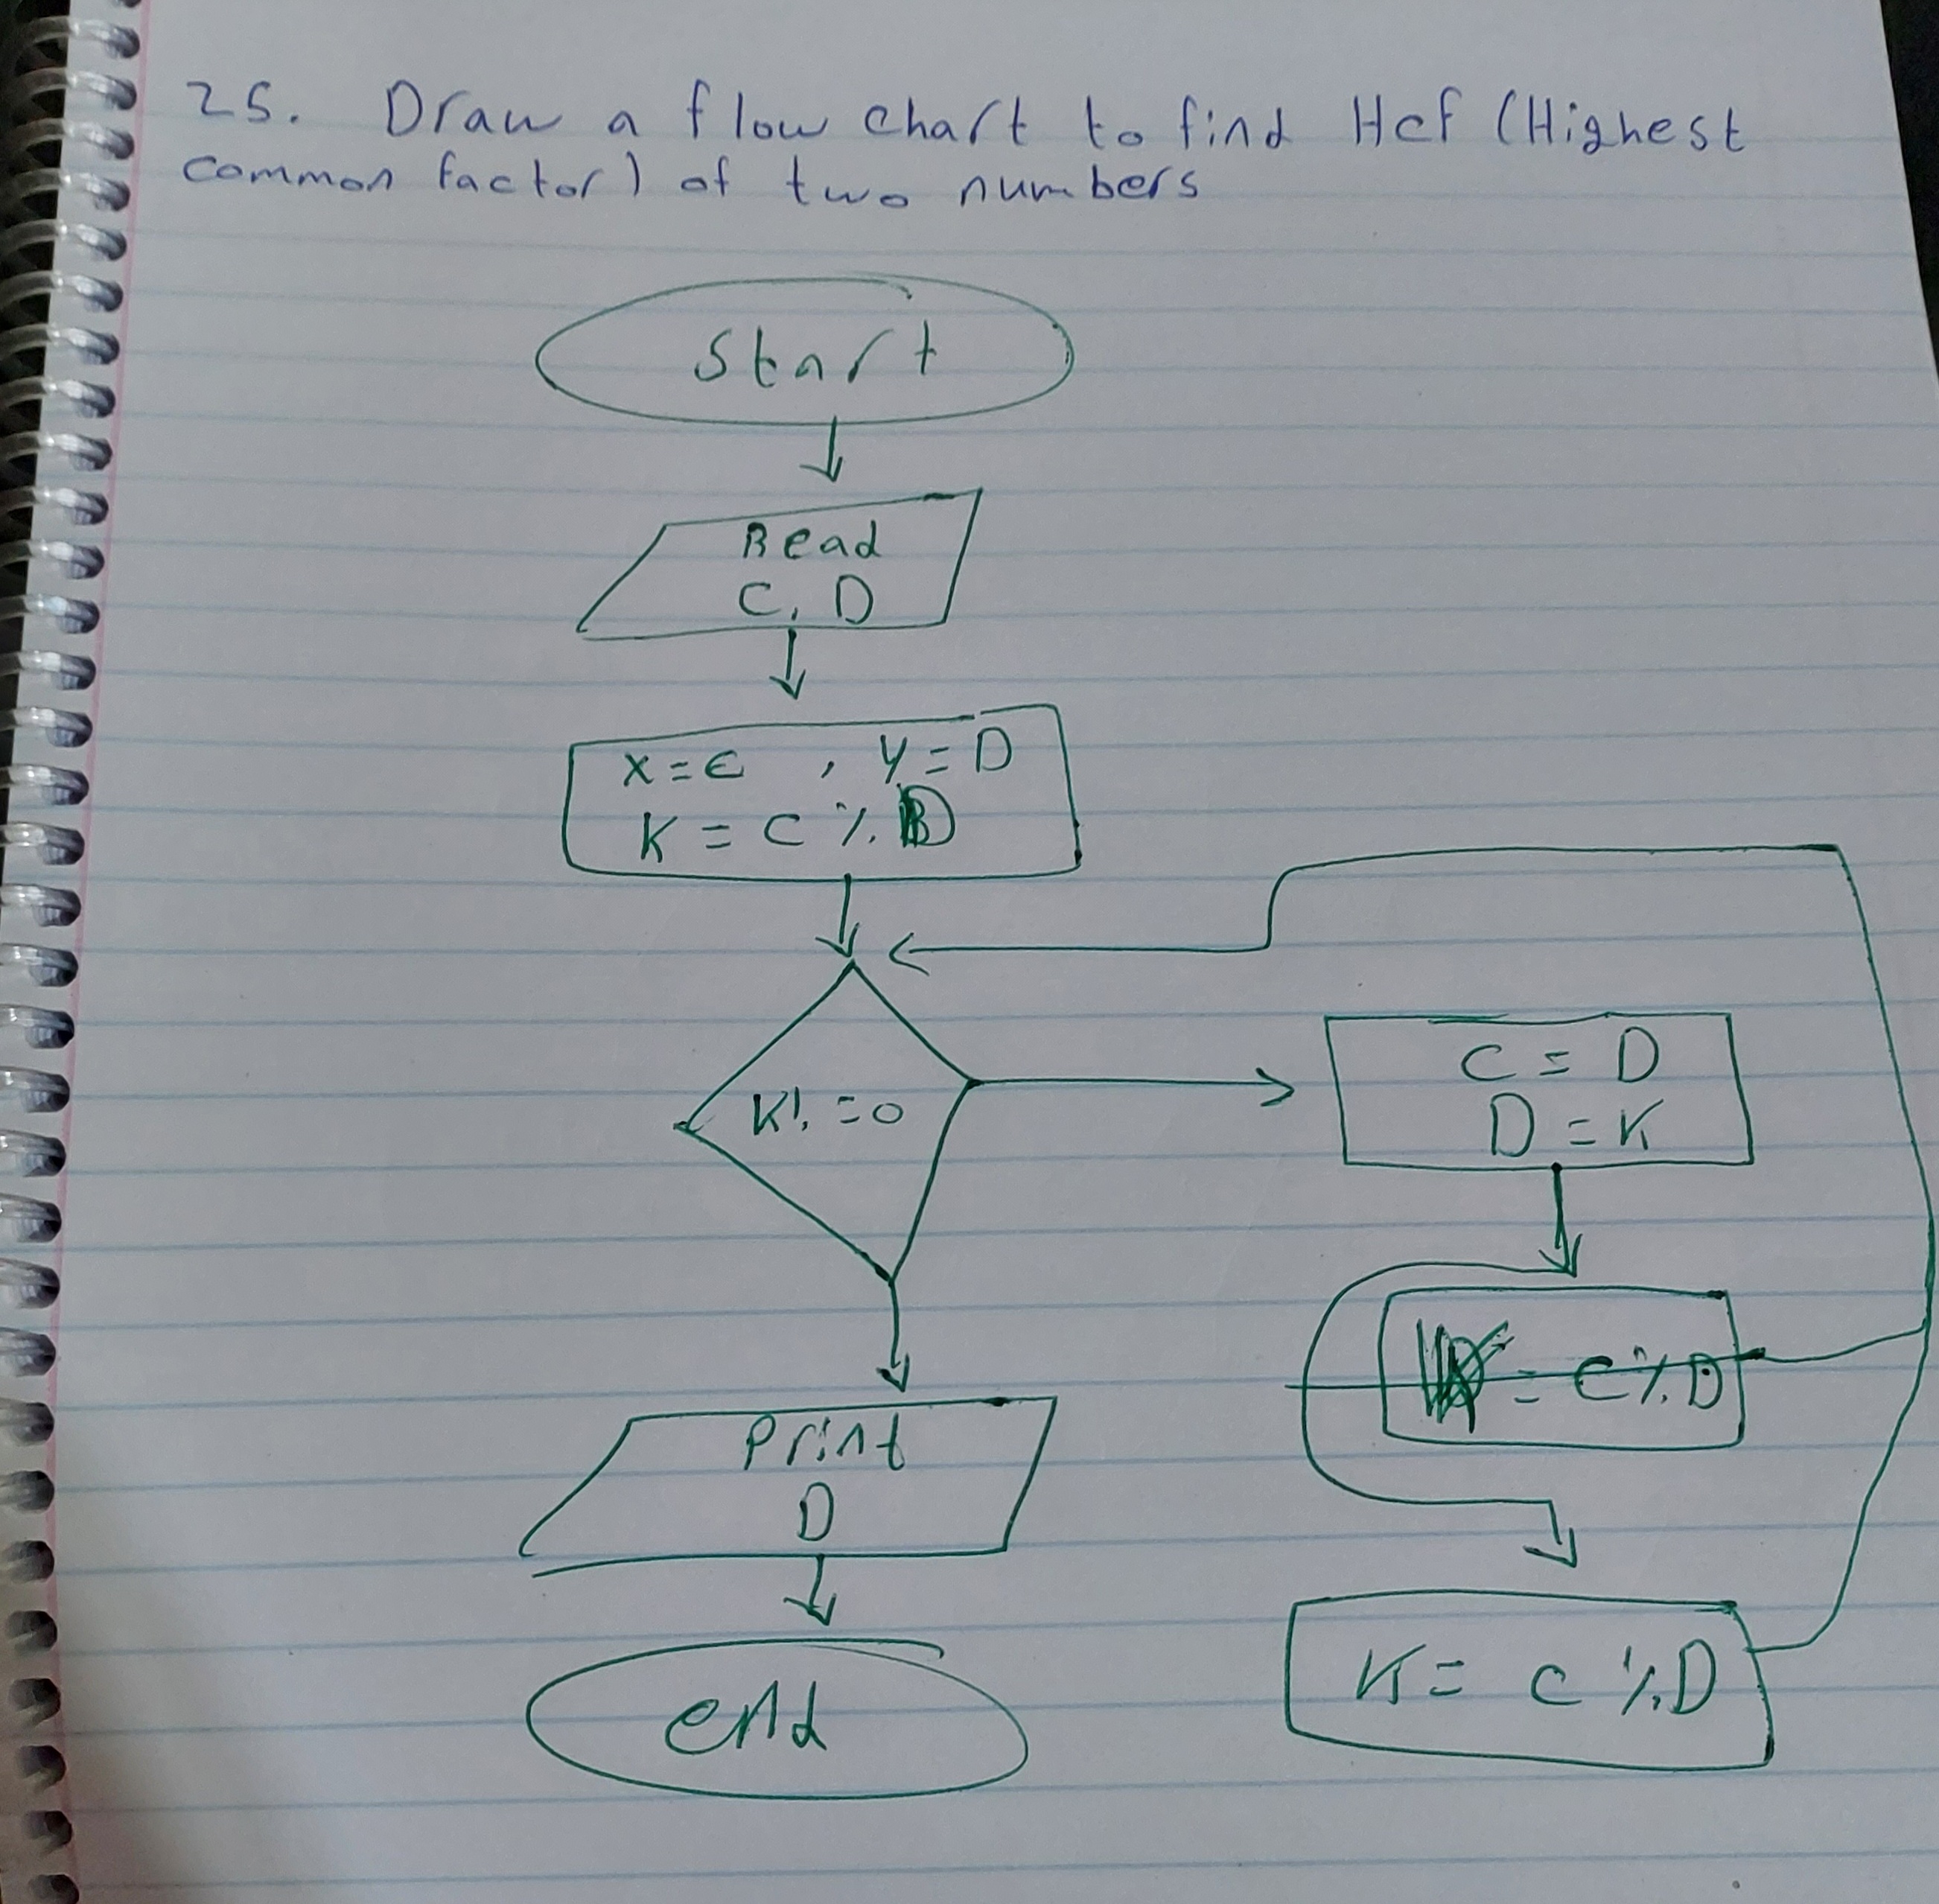 25. Draw a flow chart to find Hcf (Highest
common factor) of two numbers
Start
Read
C, D
X = C , Y = D
K = C % D
K! = 0
C = D
D = K
= C % D
Print
D
K = C % D
end